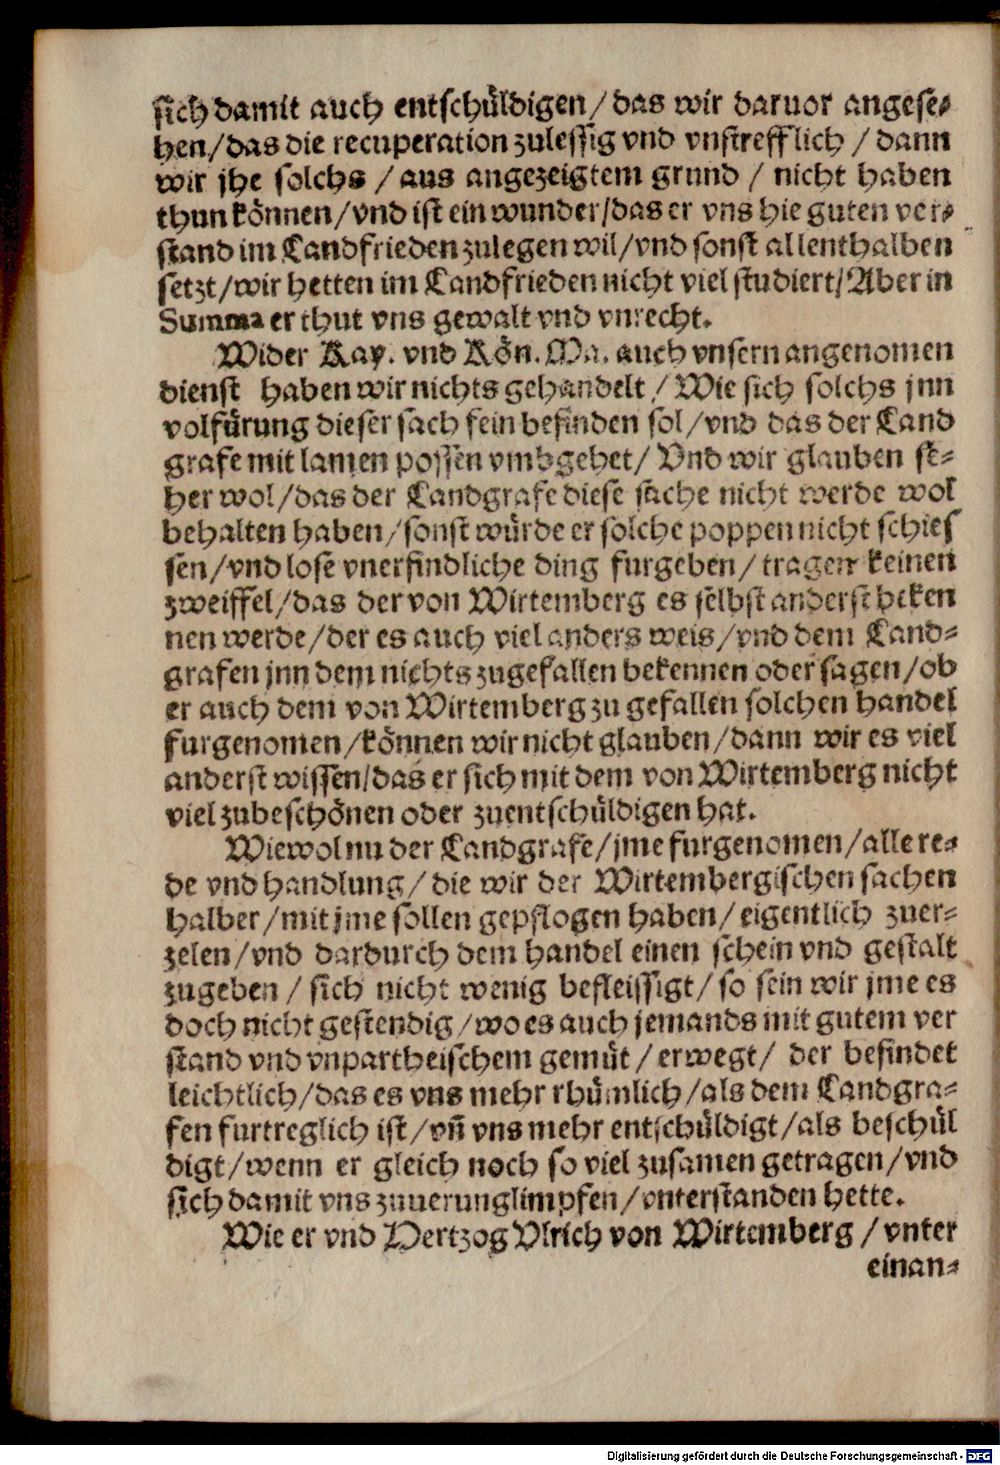 sich damit auch entschüldigen/das wir daruor angese-
hen/das die recuperation zulessig vnd vnstrefflich / dann
wir jhe solchs / aus angezeigtem grund / nicht haben
thun können/vnd ist ein wunder/das er vns hie guten ver-
stand im Landfrieden zulegen wil/vnd sonst allenthalben
setzt/wir hetten im Landfrieden nicht viel studiert/Aber in
Summa er thut vns gewalt vnd vnrecht.
Wider Kay. vnd Kön. Ma. auch vnsern angenomen
dienst haben wir nichts gehandelt / Wie sich solchs jnn
volfürung dieser sach fein befinden sol/vnd das der Land
grafe mit lamen possen vmbgehet/ Vnd wir glauben se-
her wol/das der Landgrafe diese sache nicht werde wol
behalten haben/sonst würde er solche poppen nicht schies
sen/vnd lose vnerfindliche ding furgeben/tragen keinen
zweiffel/das der von Wirtemberg es selbst anderst beken
nen werde/der es auch viel anders weis/vnd dem Land-
grafen jnn dem nichts zugefallen bekennen oder sagen/ob
er auch dem von Wirtemberg zu gefallen solchen handel
furgenomen/können wir nicht glauben/dann wir es viel
anderst wissen/das er sich mit dem von Wirtemberg nicht
viel zubeschönen oder zuentschüldigen hat.
Wiewol nu der Landgrafe/jme furgenomen/alle re-
de vnd handlung/die wir der Wirtembergischen sachen
halber/mit jme sollen gepflogen haben/eigentlich zuer-
zelen/vnd dardurch dem handel einen schein vnd gestalt
zugeben / sich nicht wenig befleissigt/so sein wir jme es
doch nicht gestendig/wo es auch jemands mit gutem ver
stand vnd vnpartheischem gemüt/erwegt/ der befindet
leichtlich/das es vns mehr rhümlich/als dem Landgra-
fen furtreglich ist/vn̄ vns mehr entschüldigt/als beschül
digt/wenn er gleich noch so viel zusamen getragen/vnd
sich damit vns zuuerunglimpfen/vnterstanden hette.
Wie er vnd Hertzog Vlrich von Wirtemberg / vnter
einan-
Digitalisierung gefördert durch die Deutsche Forschungsgemeinschaft - DFG